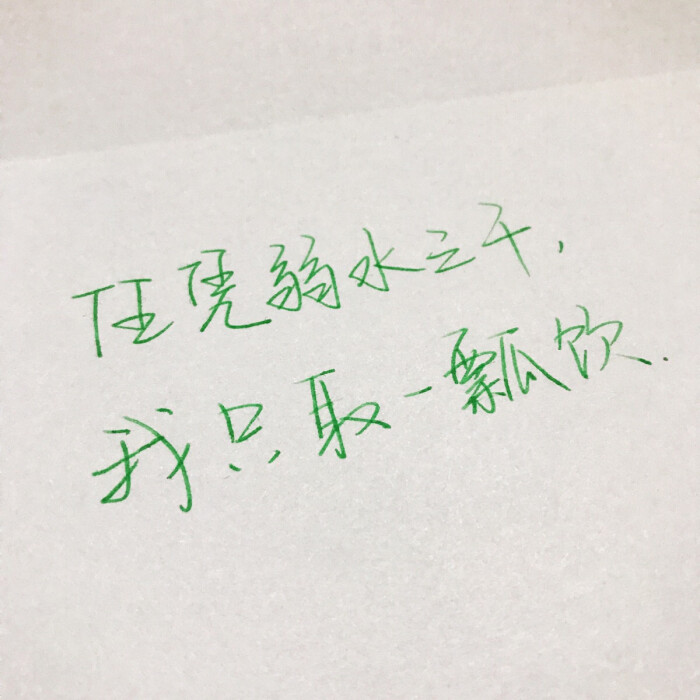 任凭弱水三千，
我只取一瓢饮.